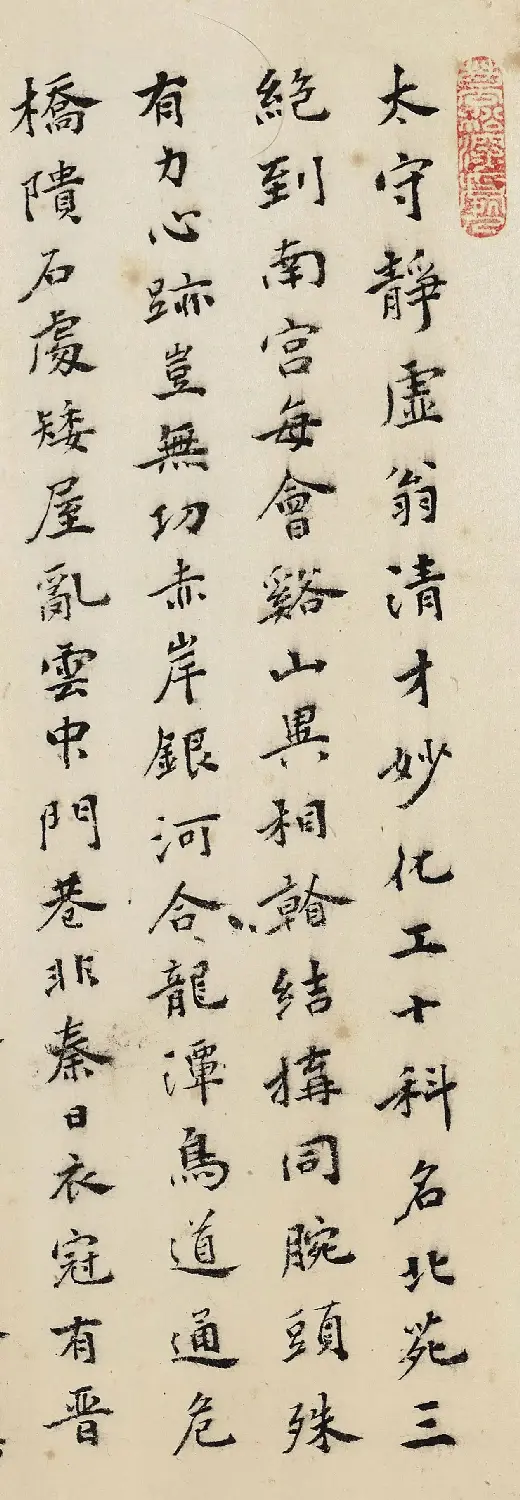 太守靜虛翁清才妙化工十科名北苑三
絕到南宮每會谿山異相結搆同腕頭殊
有力心跡豈無功赤岸銀河合龍潭鳥道通危
橋隤石處矮屋亂雲中門巷非秦日衣冠有晉